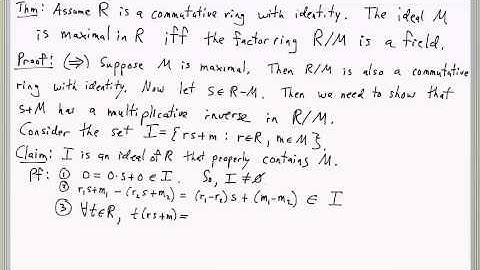 Thm: Assume R is a commutative ring with identity. The ideal M
is maximal in R iff the factor ring R/M is a field.
Proof: (⇒) Suppose M is maximal. Then R/M is also a commutative
ring with identity. Now let s∈R-M. Then we need to show that
s+M has a multiplicative inverse in R/M.
Consider the set I={rs+m : r∈R, m∈M}.
Claim: I is an ideal of R that properly contains M.
Pf: ① 0=0·s+0∈I. So, I≠∅
② r₁s+m₁-(r₂s+m₂)=(r₁-r₂)s+(m₁-m₂) ∈ I
③ ∀t∈R, t(rs+m)=